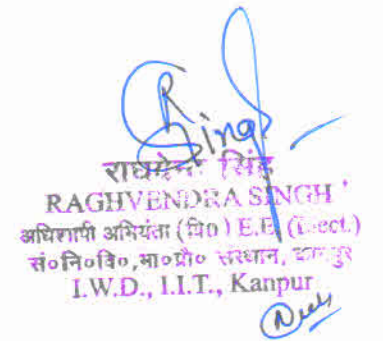 R Singh
राघवेन्द्र सिंह
RAGHVENDRA SINGH
अधिशाषी अभियंता (वि०) E.E. (Elect.)
सं०नि०वि०,भा०प्रौ० संस्थान, कानपुर
I.W.D., I.I.T., Kanpur